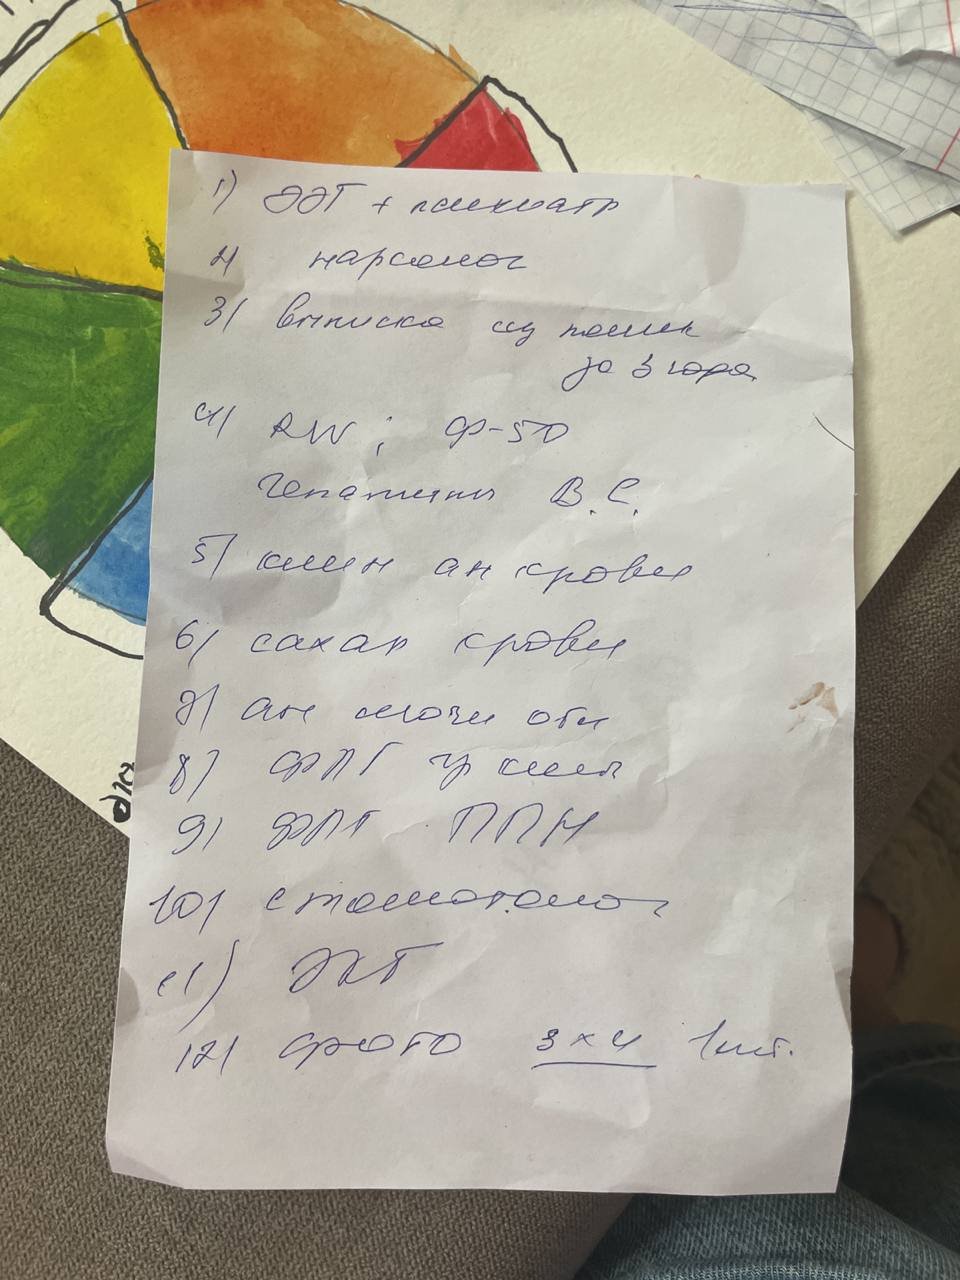 1) ЭЭГ + психиатр
2) нарколог
3) выписка из полик
за 3 года
4) RW; Ф-50
гепатиты В.С.
5) клин ан крови
6) сахар крови
7) ан мочи общ
8) ФЛГ гр клет
9) ФЛГ ППН
10) стоматолог
11) ЭКГ
12) фото 3x4 1 шт.